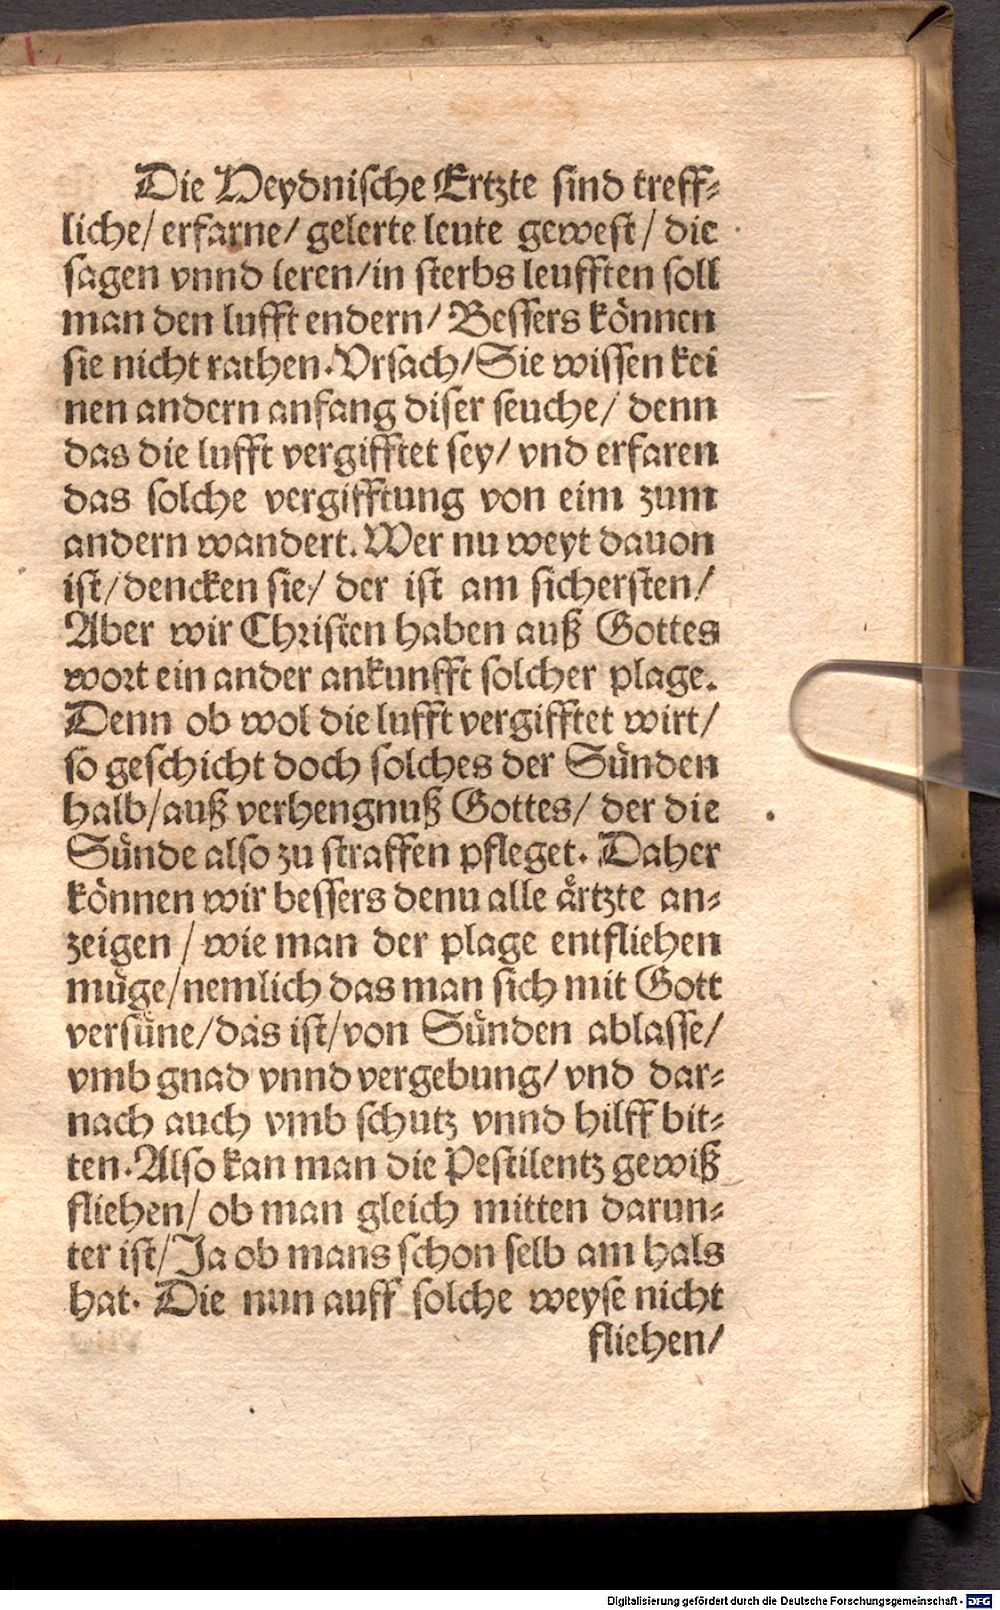 Die Heydnische Ertzte sind treff-
liche/ erfarne/ gelerte leute gewest/ die
sagen vnnd leren/in sterbs leufften soll
man den lufft endern/ Bessers können
sie nicht rathen. Vrsach/Sie wissen kei
nen andern anfang diser seuche/ denn
das die lufft vergifftet sey/ vnd erfaren
das solche vergifftung von eim zum
andern wandert. Wer nu weyt dauon
ist/dencken sie/ der ist am sichersten/
Aber wir Christen haben auß Gottes
wort ein ander ankunfft solcher plage.
Denn ob wol die lufft vergifftet wirt/
so geschicht doch solches der Sünden
halb/auß verhengnuß Gottes/ der die
Sünde also zu straffen pfleget. Daher
können wir bessers denn alle ärtzte an-
zeigen / wie man der plage entfliehen
müge/nemlich das man sich mit Gott
versüne/das ist/von Sünden ablasse/
vmb gnad vnnd vergebung/ vnd dar-
nach auch vmb schutz vnnd hilff bit-
ten. Also kan man die Pestilentz gewiß
fliehen/ ob man gleich mitten darun-
ter ist/Ja ob mans schon selb am hals
hat. Die nun auff solche weyse nicht
fliehen/
Digitalisierung gefördert durch die Deutsche Forschungsgemeinschaft - DFG